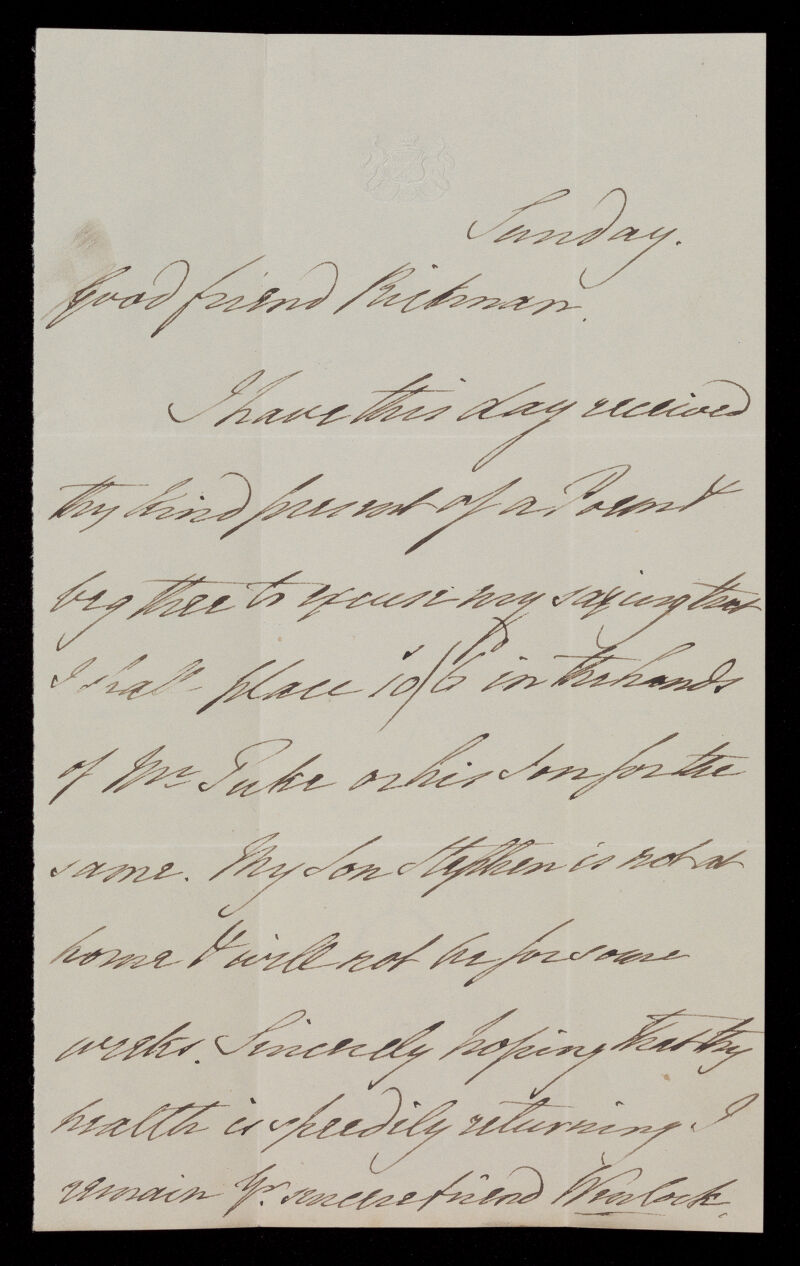 Sunday.
Good friend Rickman.
I have this day received
thy kind present of a Poem &
beg thee to excuse my saying that
I shall place 10s/6d in the hands
of Mr. Tuke or his Son for the
same. My Son Stephen is not at
home & will not be for some
weeks. Sincerely hoping that thy
health is speedily returning I
remain Yr. sincere friend Wenlock.